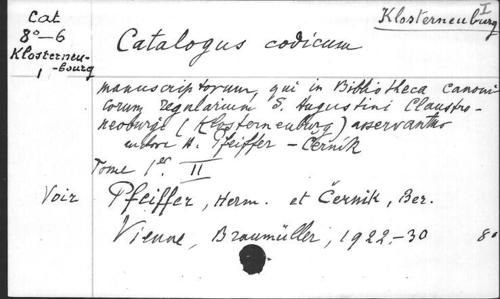 Cat
8°-6
Klosterneu-
-bourg
1
Klosterneuburg
I
Catalogus codicum
manuscriptorum, qui in Bibliotheca canoni
corum regularium S. Augustini Claustro-
neoburgi (Klosterneuburg) asservantur
H. Pfeiffer - Černik
Tome 1er. II
Voir Pfeiffer, Herm. et Černik, Ber.
Vienne, Braumüller, 1922-30 8°